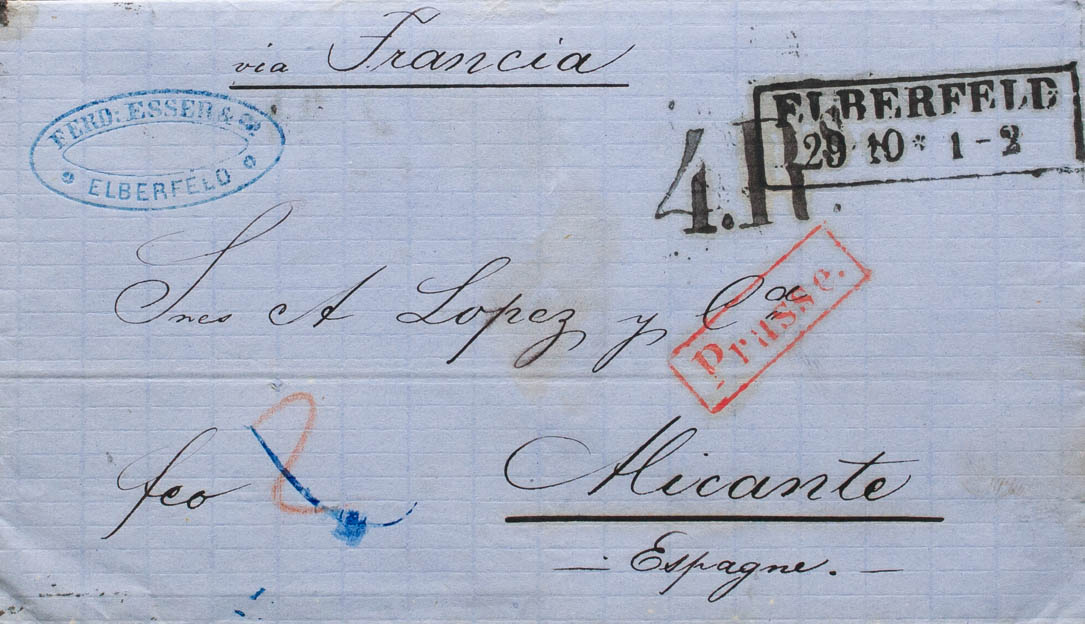 via Francia
FERD: ESSER & Co
ELBERFELD
ELBERFELD
29 10 * 1-2
4.Rs.
Prusse.
Sres A Lopez y Ca
fco
Alicante
Espagne.